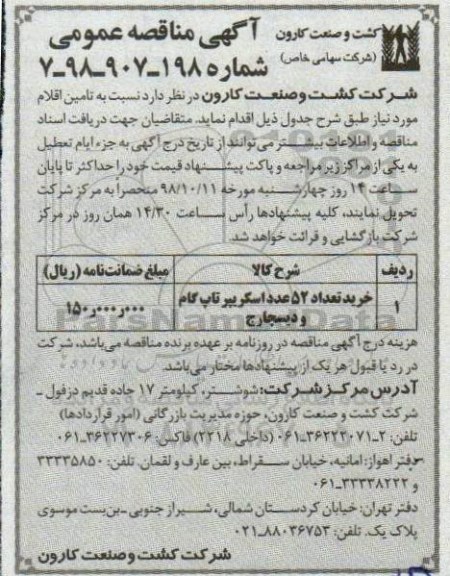 کشت و صنعت کارون
(شرکت سهامی خاص)
آگهی مناقصه عمومی
شماره ۱۹۸-۹۰۷-۹۸-۷
شرکت کشت و صنعت کارون در نظر دارد نسبت به تامین اقلام
مورد نیاز طبق شرح جدول ذیل اقدام نماید. متقاضیان جهت دریافت اسناد
مناقصه و اطلاعات بیشتر می توانند از تاریخ درج آگهی به جزء ایام تعطیل
به یکی از مراکز زیر مراجعه و پاکت پیشنهاد قیمت خود را حداکثر تا پایان
ساعت ۱۴ روز چهارشنبه مورخه ۹۸/۱۰/۱۱ منحصراً به مرکز شرکت
تحویل نمایند، کلیه پیشنهادها رأس ساعت ۱۴/۳۰ همان روز در مرکز
شرکت بازگشایی و قرائت خواهد شد.
ردیف شرح کالا مبلغ ضمانت‌نامه (ریال)
۱ خرید تعداد ۵۲ عدد اسکریپر تاپ گام ۱۵۰ر۰۰۰ر۰۰۰
و دیسچارج
ParsNamadData
هزینه درج آگهی مناقصه در روزنامه بر عهده برنده مناقصه می‌باشد، شرکت
در رد یا قبول هر یک از پیشنهادها مختار می‌باشد.
آدرس مرکز شرکت: شوشتر، کیلومتر ۱۷ جاده قدیم دزفول -
شرکت کشت و صنعت کارون، حوزه مدیریت بازرگانی (امور قراردادها)
تلفن: ۲-۳۶۲۲۲۰۷۱-۰۶۱ (داخلی ۲۲۱۸) فاکس: ۳۶۲۲۷۳۰۶-۰۶۱
دفتر اهواز: امانیه، خیابان سقراط، بین عارف و لقمان. تلفن: ۳۳۳۳۵۸۵۰
و ۳۳۳۳۸۲۲۳-۰۶۱
دفتر تهران: خیابان کردستان شمالی، شیراز جنوبی - بن‌بست موسوی
پلاک یک. تلفن: ۸۸۰۳۶۷۵۳-۰۲۱
شرکت کشت و صنعت کارون